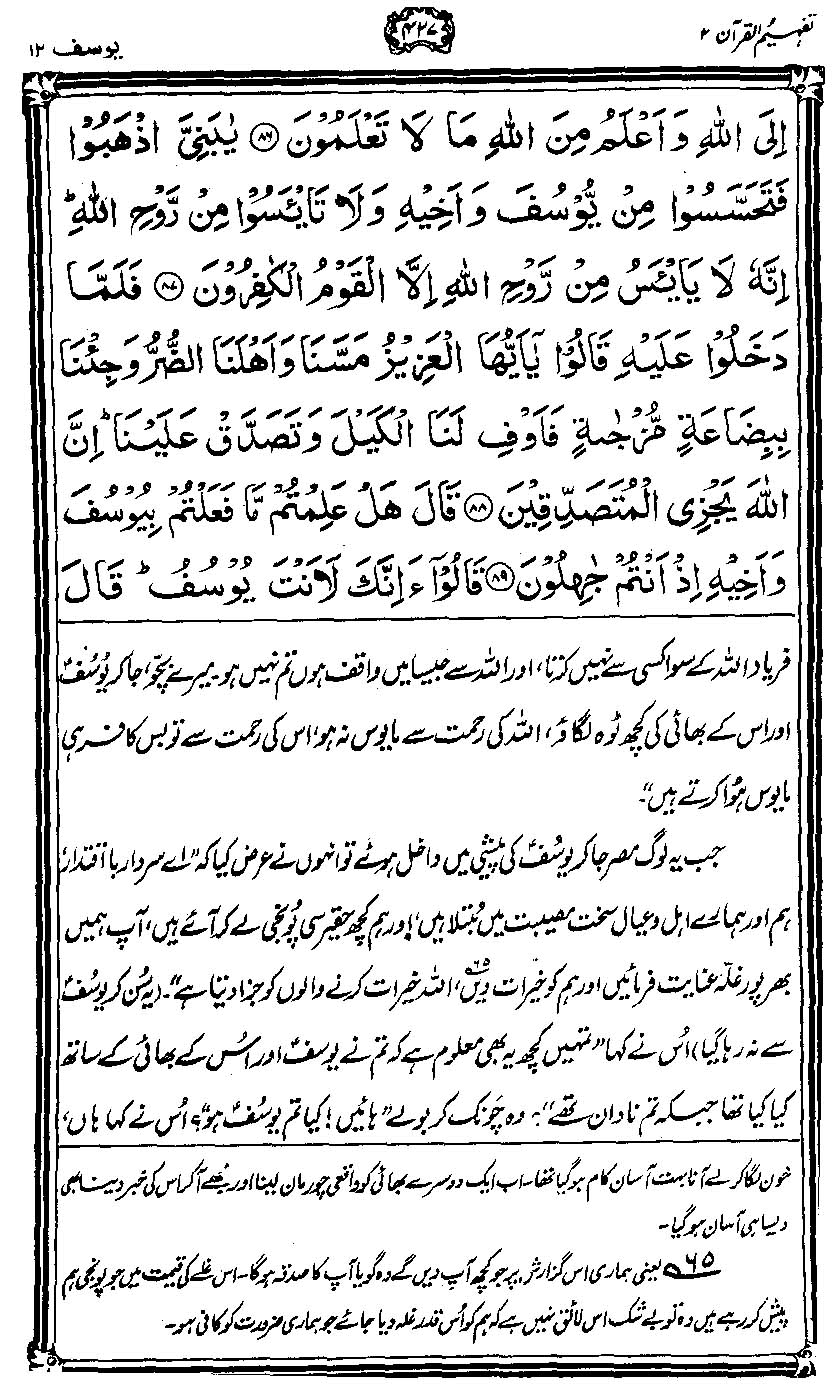 تفہیم القرآن ۲
۴۲۷
یوسف ۱۲
اِلَى اللّٰهِ وَاَعْلَمُ مِنَ اللّٰهِ مَا لَا تَعْلَمُوْنَ ﴿۸۶﴾ يٰبَنِيَّ اذْهَبُوْا
فَتَحَسَّسُوْا مِنْ يُّوْسُفَ وَاَخِيْهِ وَلَا تَايْـَٔسُوْا مِنْ رَّوْحِ اللّٰهِ ؕ
اِنَّهٗ لَا يَايْـَٔسُ مِنْ رَّوْحِ اللّٰهِ اِلَّا الْقَوْمُ الْكٰفِرُوْنَ ﴿۸۷﴾ فَلَمَّا
دَخَلُوْا عَلَيْهِ قَالُوْا يٰۤاَيُّهَا الْعَزِيْزُ مَسَّنَا وَاَهْلَنَا الضُّرُّ وَجِئْنَا
بِبِضَاعَةٍ مُّزْجٰىةٍ فَاَوْفِ لَنَا الْكَيْلَ وَتَصَدَّقْ عَلَيْنَا ؕ اِنَّ
اللّٰهَ يَجْزِى الْمُتَصَدِّقِيْنَ ﴿۸۸﴾ قَالَ هَلْ عَلِمْتُمْ مَّا فَعَلْتُمْ بِيُوْسُفَ
وَاَخِيْهِ اِذْ اَنْتُمْ جٰهِلُوْنَ ﴿۸۹﴾ قَالُوْۤا ءَاِنَّكَ لَاَنْتَ يُوْسُفُ ؕ قَالَ
فریاد اللہ کے سوا کسی سے نہیں کرتا، اور اللہ سے جیسا میں واقف ہوں تم نہیں ہو۔ میرے بچّو، جا کر یُوسُفؑ
اور اس کے بھائی کی کچھ ٹوہ لگاؤ، اللہ کی رحمت سے مایوس نہ ہو، اس کی رحمت سے تو بس کافر ہی
مایوس ہُوا کرتے ہیں“۔
جب یہ لوگ مصر جا کر یُوسُفؑ کی پیشی میں داخل ہوئے تو انہوں نے عرض کیا کہ ”اے سردارِ با اقتدار،
ہم اور ہمارے اہل و عیال سخت مصیبت میں مُبتلا ہیں، اور ہم کچھ حقیر سی پُونجی لے کر آئے ہیں، آپ ہمیں
بھرپور غلّہ عنایت فرمائیں اور ہم کو خیرات دیں<sup>۶۵</sup>، اللہ خیرات کرنے والوں کو جزا دیتا ہے“۔ (یہ سُن کر یوسُفؑ
سے نہ رہا گیا) اُس نے کہا ”تمہیں کچھ یہ بھی معلوم ہے کہ تم نے یوسفؑ اور اُس کے بھائی کے ساتھ
کیا کیا تھا جبکہ تم نادان تھے“؟ وہ چَونک کر بولے ”ہائیں! کیا تم یوسُفؑ ہو“؟ اُس نے کہا ہاں،
خون لگا کر لے آنا بہت آسان کام ہو گیا تھا۔ اب ایک دوسرے بھائی کو واقعی چور مان لینا اور مجھے آ کر اس کی خبر دینا بھی
ویسا ہی آسان ہو گیا۔
۶۵ یعنی ہماری اس گزارش پر جو کچھ آپ دیں گے وہ گویا آپ کا صدقہ ہوگا۔ اس غلے کی قیمت میں جو پونجی ہم
پیش کر رہے ہیں وہ تو بے شک اس لائق نہیں ہے کہ ہم کو اُس قدر غلہ دیا جائے جو ہماری ضرورت کو کافی ہو۔